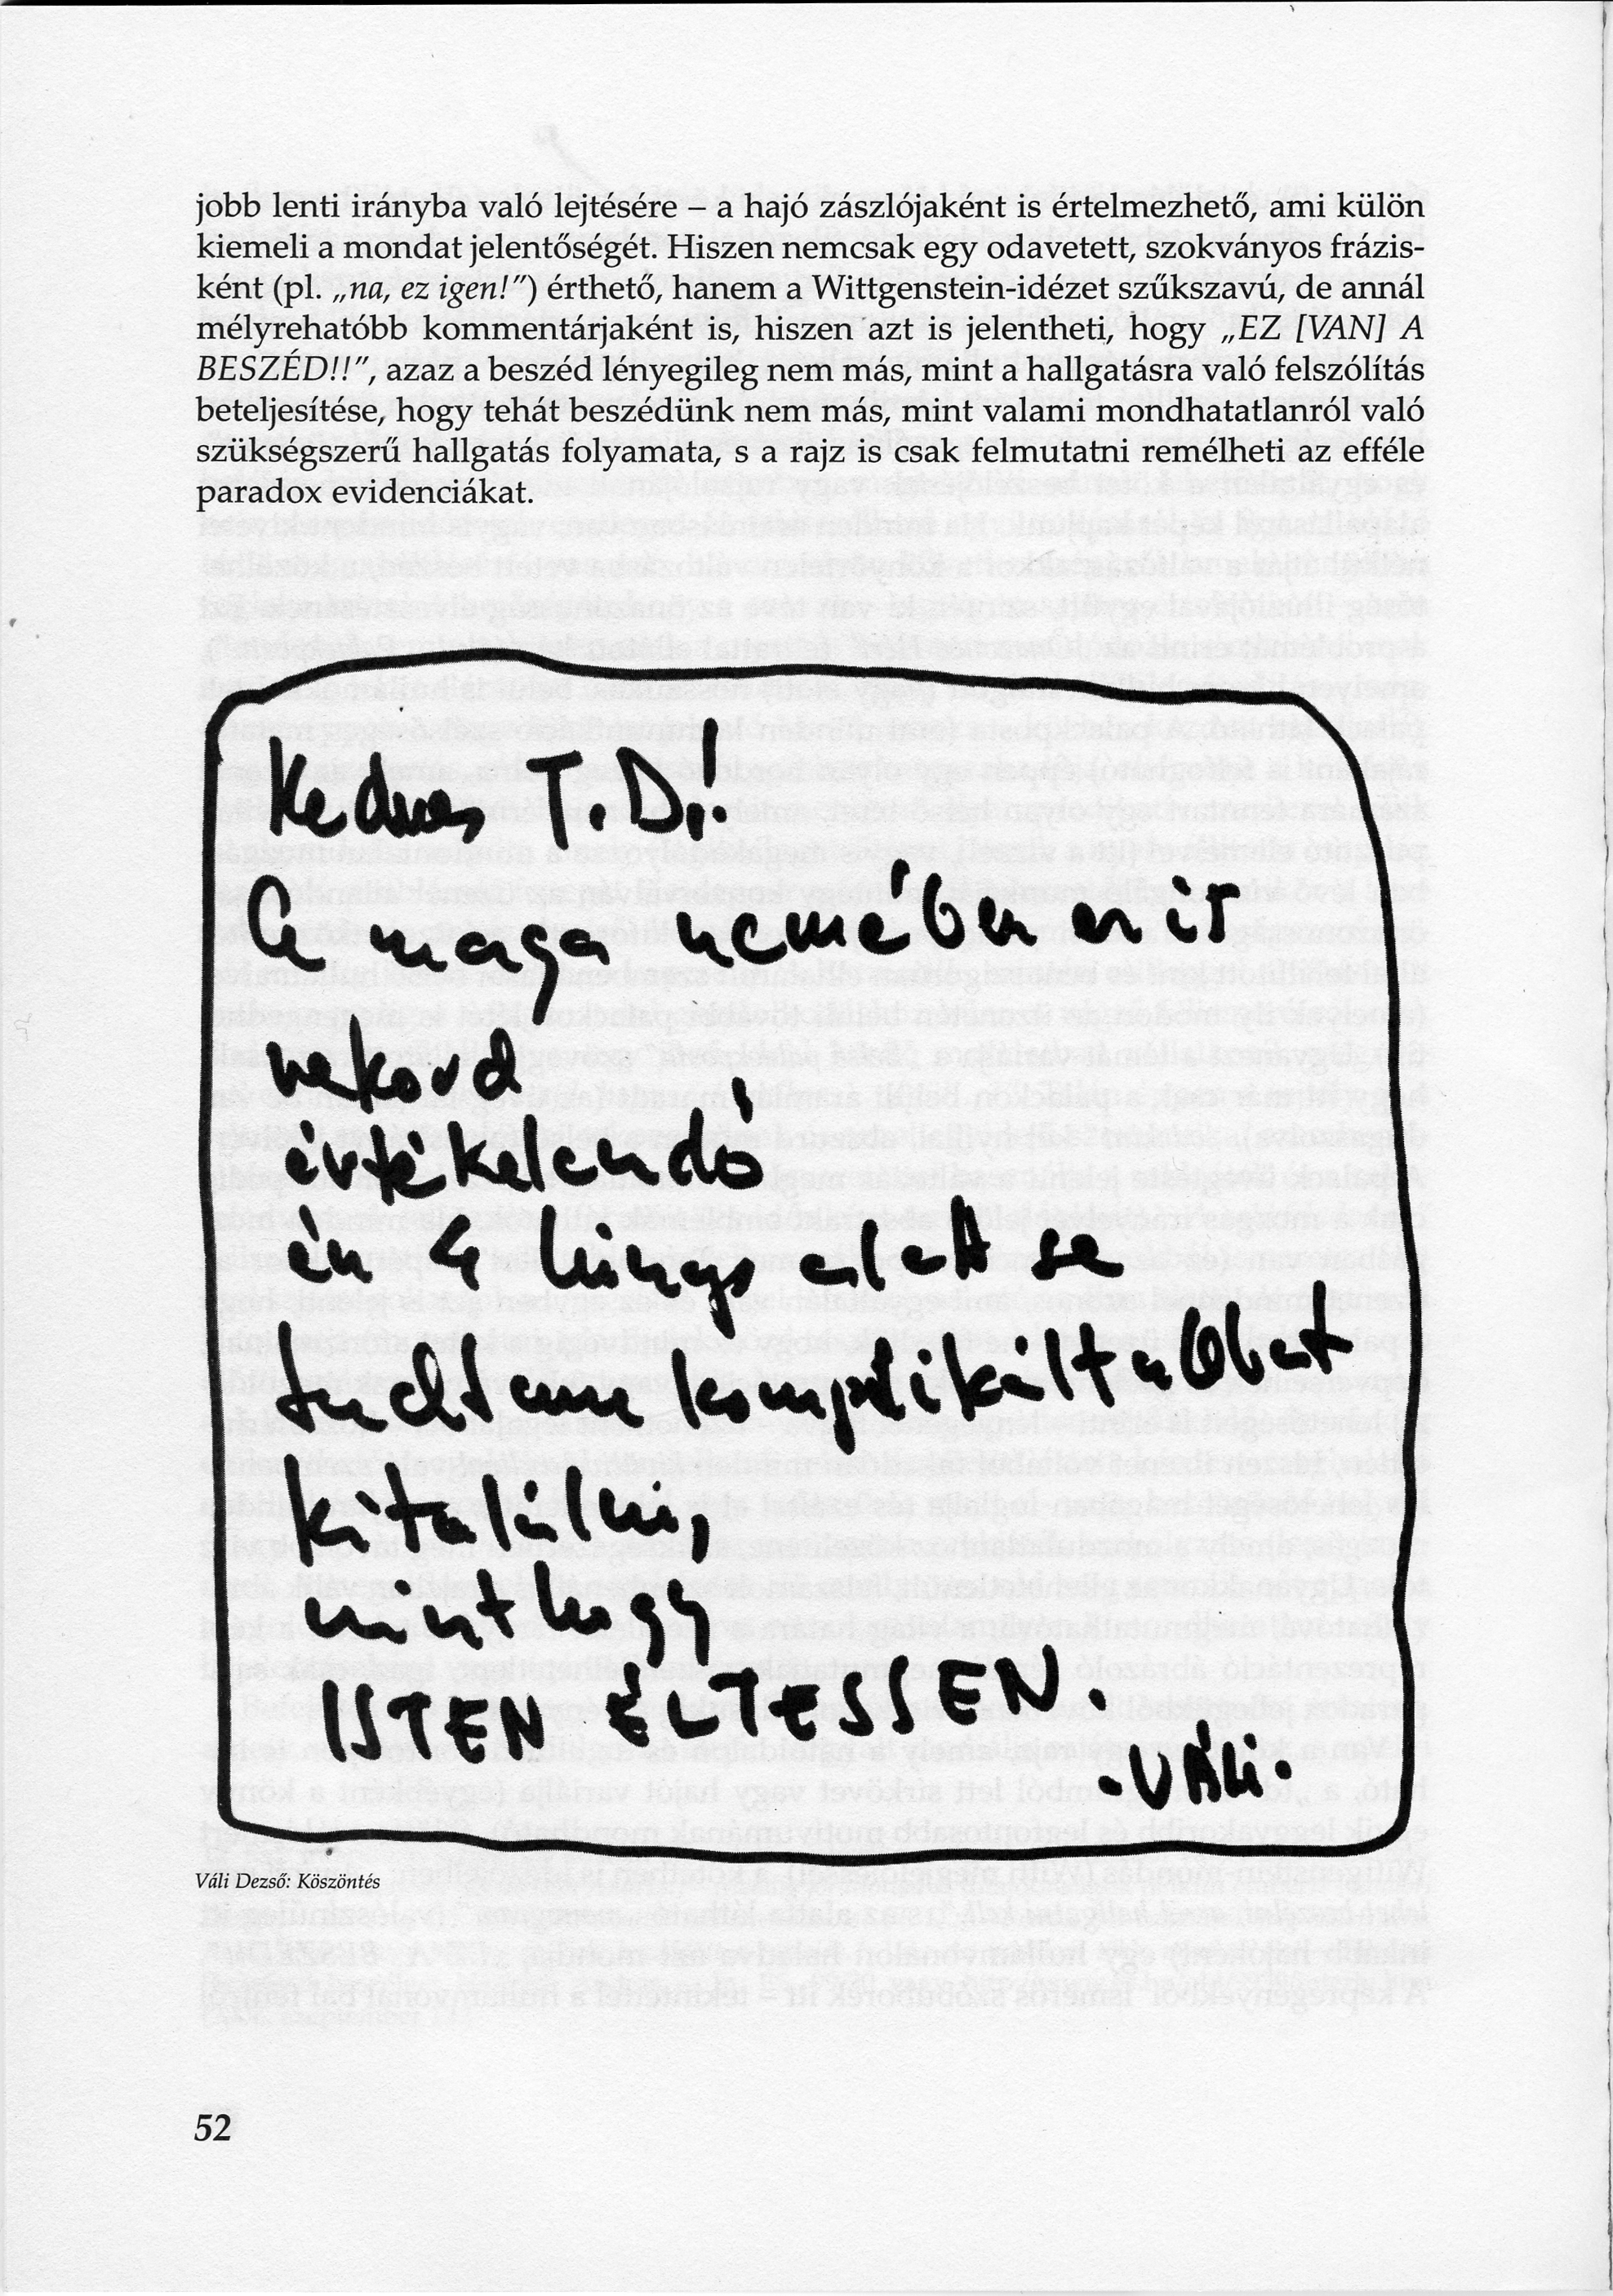 jobb lenti irányba való lejtésére – a hajó zászlójaként is értelmezhető, ami külön
kiemeli a mondat jelentőségét. Hiszen nemcsak egy odavetett, szokványos frázis-
ként (pl. „na, ez igen!”) érthető, hanem a Wittgenstein-idézet szűkszavú, de annál
mélyrehatóbb kommentárjaként is, hiszen azt is jelentheti, hogy „EZ [VAN] A
BESZÉD!!”, azaz a beszéd lényegileg nem más, mint a hallgatásra való felszólítás
beteljesítése, hogy tehát beszédünk nem más, mint valami mondhatatlanról való
szükségszerű hallgatás folyamata, s a rajz is csak felmutatni remélheti az efféle
paradox evidenciákat.
Kedves T.D.!
A maga nemében
rekord
értékelendő
én 4 hónap alatt se
tudtam komplikáltabbat
kitalálni,
minthogy
ISTEN ÉLTESSEN.
.VÁLI.
Váli Dezső: Köszöntés
52